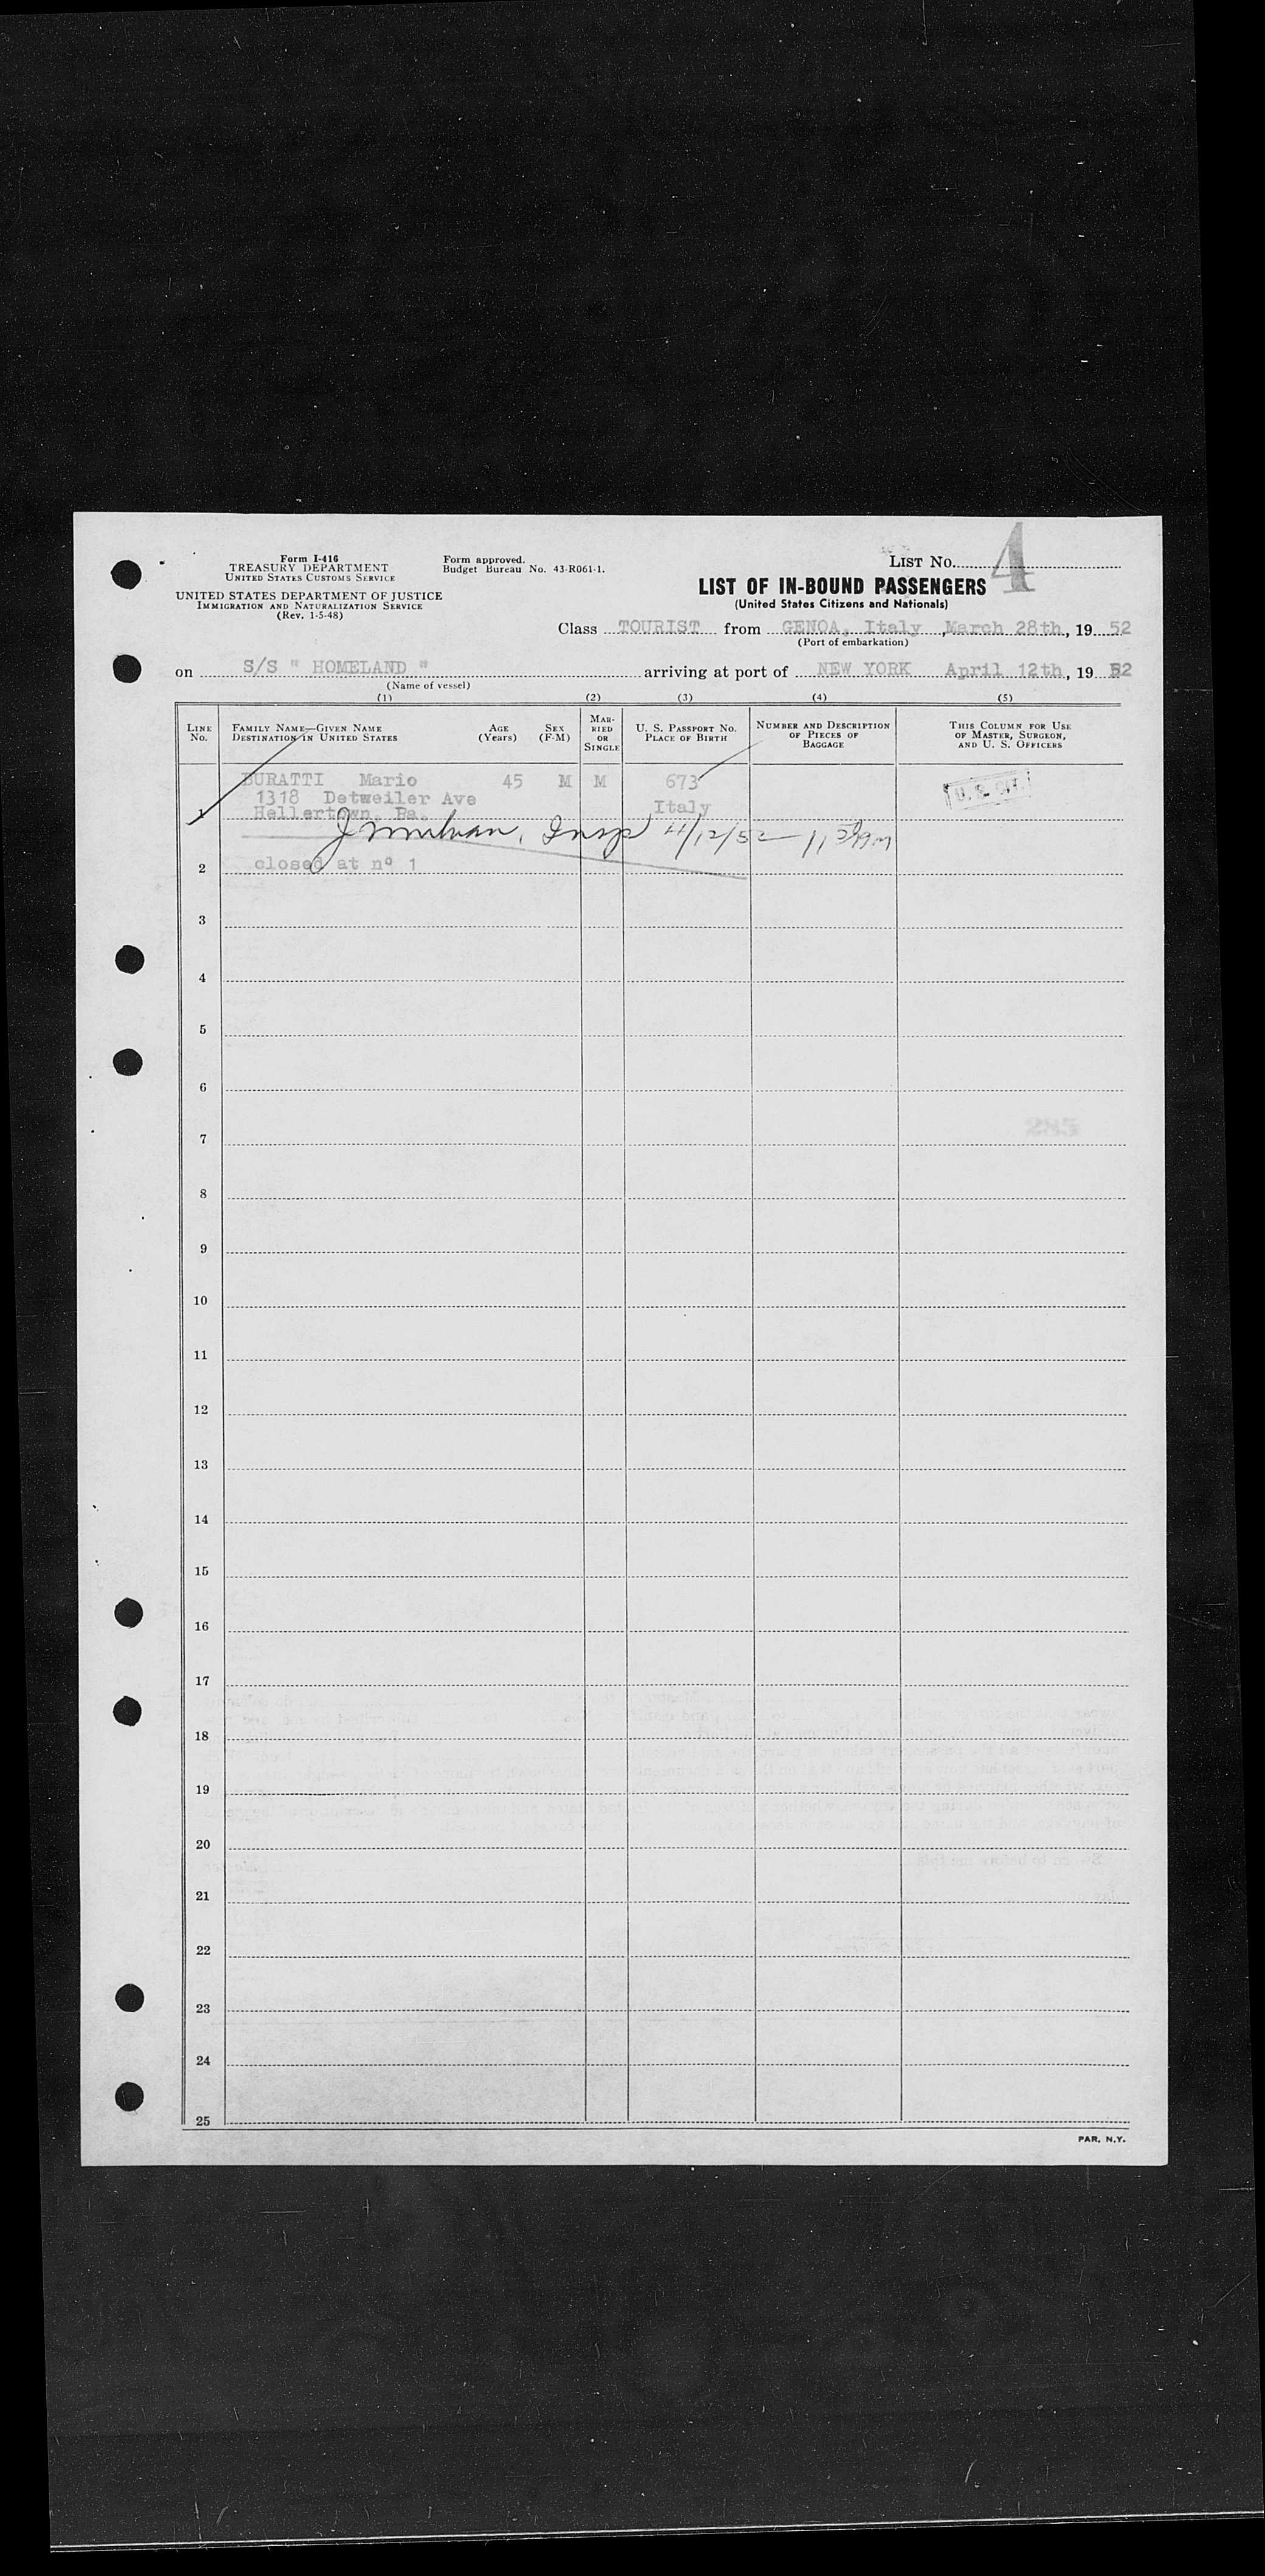 Form I-416
TREASURY DEPARTMENT
UNITED STATES CUSTOMS SERVICE
UNITED STATES DEPARTMENT OF JUSTICE
IMMIGRATION AND NATURALIZATION SERVICE
(Rev. 1-5-48)
Form approved.
Budget Bureau No. 43-R061-1.
LIST No. 4
LIST OF IN-BOUND PASSENGERS
(United States Citizens and Nationals)
Class TOURIST from GENOA, Italy, March 28th, 19 52
(Port of embarkation)
on S/S " HOMELAND " arriving at port of NEW YORK April 12th, 19 52
(Name of vessel)
(1) (2) (3) (4) (5)
LINE No. FAMILY NAME—GIVEN NAME DESTINATION IN UNITED STATES AGE (Years) SEX (F-M) MARRIED OR SINGLE U. S. PASSPORT No. PLACE OF BIRTH NUMBER AND DESCRIPTION OF PIECES OF BAGGAGE THIS COLUMN FOR USE OF MASTER, SURGEON, AND U. S. OFFICERS
BURATTI Mario 45 M M 673
1318 Detweiler Ave Italy U. S. CIT.
1 Hellertown, Pa.
Insp 4/12/52
2 closed at nº 1
3
4
5
6
7
8
9
10
11
12
13
14
15
16
17
18
19
20
21
22
23
24
25
PAR. N.Y.